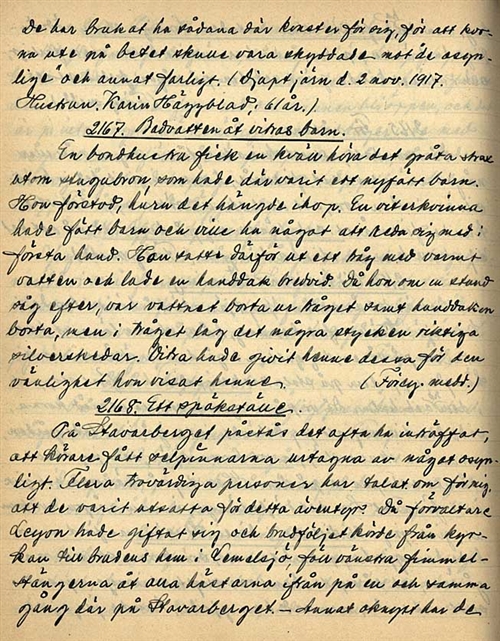 De har brukat ha sådana där konster för sig, för att kor-
na ute på betet skulle vara skyddade mot "de osyn-
lige" och annat farligt. (Djaptjärn d. 2 nov. 1917.
Hustrun Karin Häggblad, 61 år.)
2167. Badvatten åt vitras barn.
En bondhustra fick en kväll höra det gråta strax
utom stugubron, som hade där varit ett nyfött barn.
Hon förstod, huru det hängde ihop. En viterkvinna
hade fått barn och ville ha något att reda sig med i
första hand. Hon satte därför ut ett tråg med varmt
vatten och lade en handduk bredvid. Då hon om en stund
såg efter, var vattnet borta ur tråget samt handduken
borta, men i tråget låg det några stycken riktiga
silverskedar. Vitra hade givit henne dessa för den
vänlighet hon visat henne. (Föreg. medd.)
2168. Ett spökställe.
På Stavarberget påstås det ofta ha inträffat,
att körare fått selpinnarna urtagna av något osyn-
ligt. Flera trovärdiga personer har talat om för mig,
att de varit utsatta för detta äventyr. Då förvaltare
Leyon hade giftat sig och brudföljet körde från kyr-
kan till brudens hem i Lemelsjö, föll vänstra fimmel-
stängerna åt alla hästarna ifrån på en och samma
gång där på Stavarberget. — Annat oknytt har de